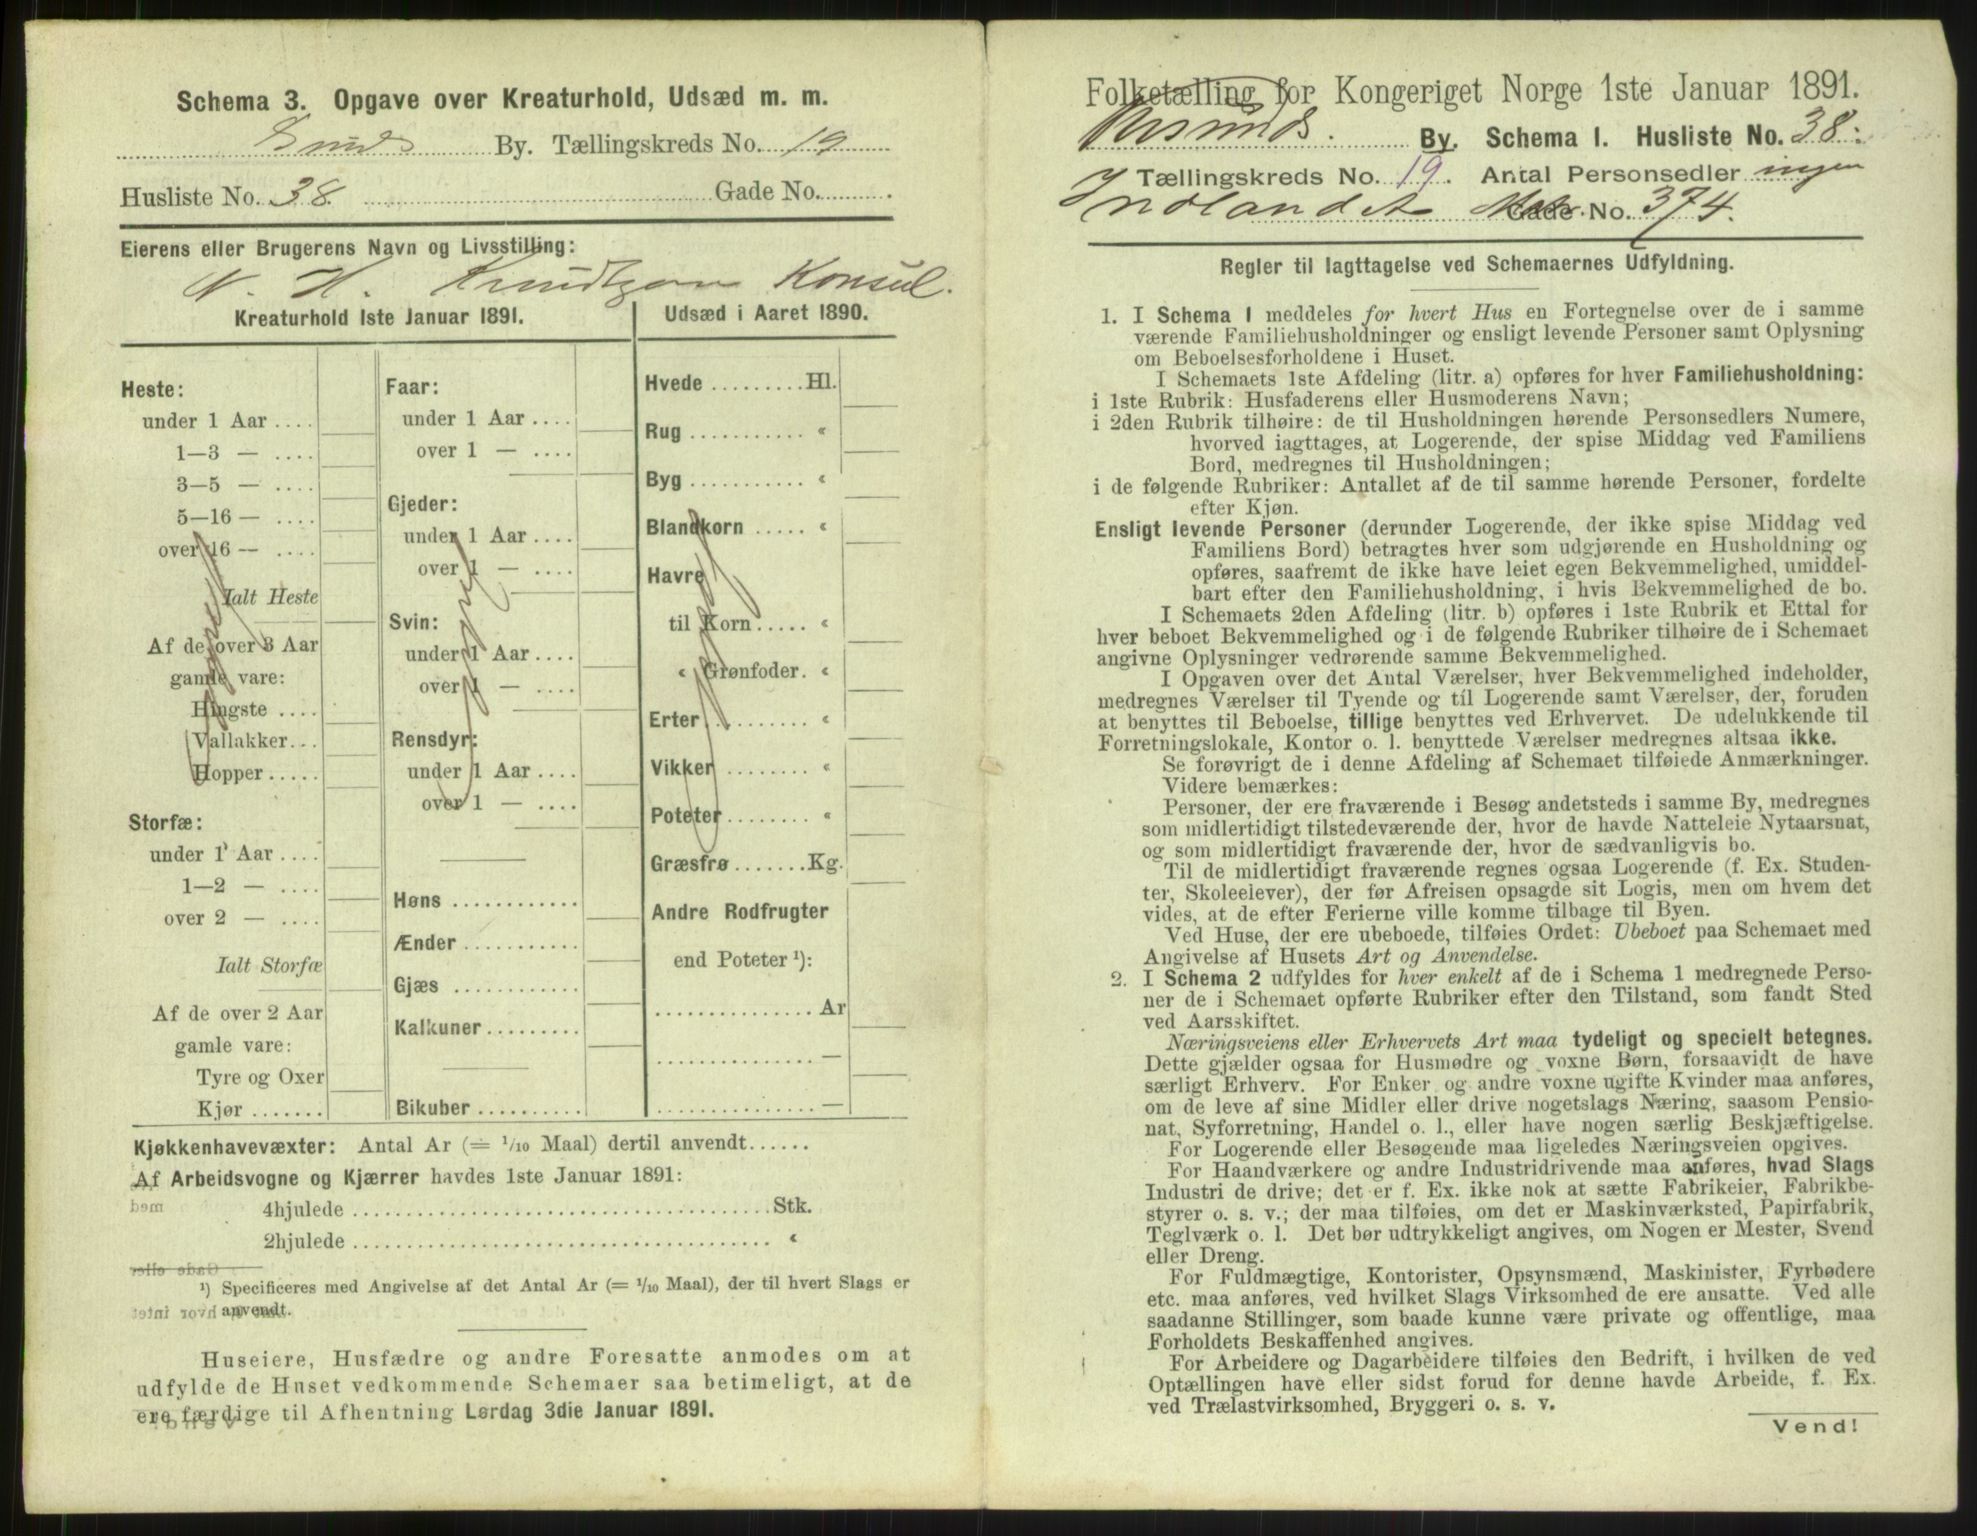 Schema 3. Opgave over Kreaturhold, Udsæd m. m.
By. Tællingskreds No. 19
Husliste No. 38. Gade No.
Eierens eller Brugerens Navn og Livsstilling:
N. H. Knudtzon Konsul.
Kreaturhold 1ste Januar 1891.
Heste:
under 1 Aar ....
1—3 — ....
3—5 — ....
5—16 — ....
over 16 — ....
Ialt Heste
Af de over 3 Aar
gamle vare:
Hingste ....
Vallakker...
Hopper .....
Storfæ:
under 1 Aar ....
1—2 — ....
over 2 — ....
Ialt Storfæ
Af de over 2 Aar
gamle vare:
Tyre og Oxer
Kjør .......
Ingen
Faar:
under 1 Aar ....
over 1 — ....
Gjeder:
under 1 Aar ....
over 1 — ....
Svin:
under 1 Aar ....
over 1 — ....
Rensdyr:
under 1 Aar ....
over 1 — ....
Høns ............
Ænder ...........
Gjæs ............
Kalkuner .........
Bikuber ..........
Ingen
Udsæd i Aaret 1890.
Hvede ......... Hl.
Rug ........... «
Byg ........... «
Blandkorn ..... «
Havre
til Korn ..... «
« Grønfoder. «
Erter ......... «
Vikker ........ «
Poteter ........ «
Græsfrø ....... Kg.
Andre Rodfrugter
end Poteter ¹):
............... Ar
............... —
............... —
Ingen
Kjøkkenhavevæxter: Antal Ar (= 1/10 Maal) dertil anvendt......
Af Arbeidsvogne og Kjærrer havdes 1ste Januar 1891:
4hjulede ...................................... Stk.
2hjulede ...................................... «
¹) Specificeres med Angivelse af det Antal Ar (= 1/10 Maal), der til hvert Slags er
anvendt.
Huseiere, Husfædre og andre Foresatte anmodes om at
udfylde de Huset vedkommende Schemaer saa betimeligt, at de
ere færdige til Afhentning Lørdag 3die Januar 1891.
Folketælling for Kongeriget Norge 1ste Januar 1891.
By. Schema I. Husliste No. 38.
Tællingskreds No. 19. Antal Personsedler ingen
Indlandet Matr. Gade No. 374.
Regler til Iagttagelse ved Schemaernes Udfyldning.
1. I Schema I meddeles for hvert Hus en Fortegnelse over de i samme
værende Familiehusholdninger og ensligt levende Personer samt Oplysning
om Beboelsesforholdene i Huset.
I Schemaets 1ste Afdeling (litr. a) opføres for hver Familiehusholdning:
i 1ste Rubrik: Husfaderens eller Husmoderens Navn;
i 2den Rubrik tilhøire: de til Husholdningen hørende Personsedlers Numere,
hvorved iagttages, at Logerende, der spise Middag ved Familiens
Bord, medregnes til Husholdningen;
i de følgende Rubriker: Antallet af de til samme hørende Personer, fordelte
efter Kjøn.
Ensligt levende Personer (derunder Logerende, der ikke spise Middag ved
Familiens Bord) betragtes hver som udgjørende en Husholdning og
opføres, saafremt de ikke have leiet egen Bekvemmelighed, umiddel-
bart efter den Familiehusholdning, i hvis Bekvemmelighed de bo.
I Schemaets 2den Afdeling (litr. b) opføres i 1ste Rubrik et Ettal for
hver beboet Bekvemmelighed og i de følgende Rubriker tilhøire de i Schemaet
angivne Oplysninger vedrørende samme Bekvemmelighed.
I Opgaven over det Antal Værelser, hver Bekvemmelighed indeholder,
medregnes Værelser til Tyende og til Logerende samt Værelser, der, foruden
at benyttes til Beboelse, tillige benyttes ved Erhvervet. De udelukkende til
Forretningslokale, Kontor o. l. benyttede Værelser medregnes altsaa ikke.
Se forøvrigt de i denne Afdeling af Schemaet tilføiede Anmærkninger.
Videre bemærkes:
Personer, der ere fraværende i Besøg andetsteds i samme By, medregnes
som midlertidigt tilstedeværende der, hvor de havde Natteleie Nytaarsnat,
og som midlertidigt fraværende der, hvor de sædvanligvis bo.
Til de midlertidigt fraværende regnes ogsaa Logerende (f. Ex. Studen-
ter, Skoleelever), der før Afreisen opsagde sit Logis, men om hvem det
vides, at de efter Ferierne ville komme tilbage til Byen.
Ved Huse, der ere ubeboede, tilføies Ordet: Ubeboet paa Schemaet med
Angivelse af Husets Art og Anvendelse.
2. I Schema 2 udfyldes for hver enkelt af de i Schema 1 medregnede Perso-
ner de i Schemaet opførte Rubriker efter den Tilstand, som fandt Sted
ved Aarsskiftet.
Næringsveiens eller Erhvervets Art maa tydeligt og specielt betegnes.
Dette gjælder ogsaa for Husmødre og voxne Børn, forsaavidt de have
særligt Erhverv. For Enker og andre voxne ugifte Kvinder maa anføres,
om de leve af sine Midler eller drive nogetslags Næring, saasom Pensio-
nat, Syforretning, Handel o. l., eller have nogen særlig Beskjæftigelse.
For Logerende eller Besøgende maa ligeledes Næringsveien opgives.
For Haandværkere og andre Industridrivende maa anføres, hvad Slags
Industri de drive; det er f. Ex. ikke nok at sætte Fabrikeier, Fabrikbe-
styrer o. s. v.; der maa tilføies, om det er Maskinværksted, Papirfabrik,
Teglværk o. l. Det bør udtrykkeligt angives, om Nogen er Mester, Svend
eller Dreng.
For Fuldmægtige, Kontorister, Opsynsmænd, Maskinister, Fyrbødere
etc. maa anføres, ved hvilket Slags Virksomhed de ere ansatte. Ved alle
saadanne Stillinger, som baade kunne være private og offentlige, maa
Forholdets Beskaffenhed angives.
For Arbeidere og Dagarbeidere tilføies den Bedrift, i hvilken de ved
Optællingen have eller sidst forud for denne havde Arbeide, f. Ex.
ved Trælastvirksomhed, Bryggeri o. s. v.
Vend!